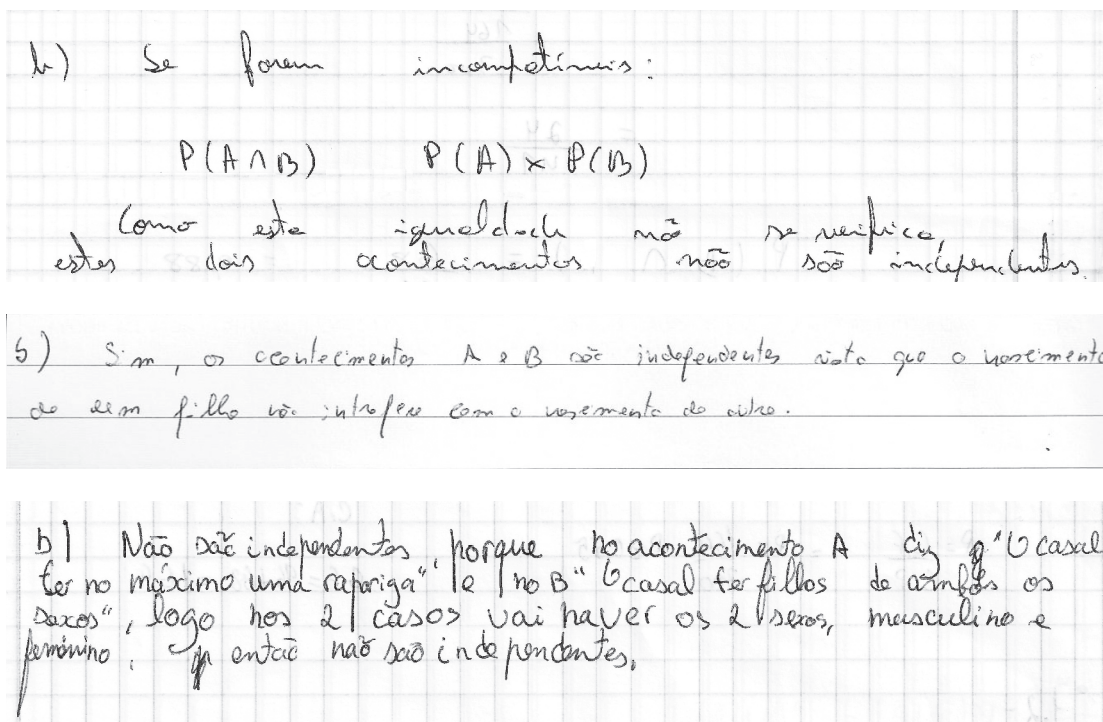 b) Se forem incompatíveis:
P(A∩B) P(A) × P(B)
Como esta igualdade não se verifica,
estes dois acontecimentos não são independentes.
b) Sim, os acontecimentos A e B são independentes visto que o nascimento
de um filho não intrefere com o nascimento do outro.
b) Não são independentes, porque no acontecimento A diz q "O casal
ter no máximo uma rapariga" e no B "O casal ter filhos de ambos os
sexos", logo nos 2 casos vai haver os 2 sexos, masculino e
feminino. então não são independentes.